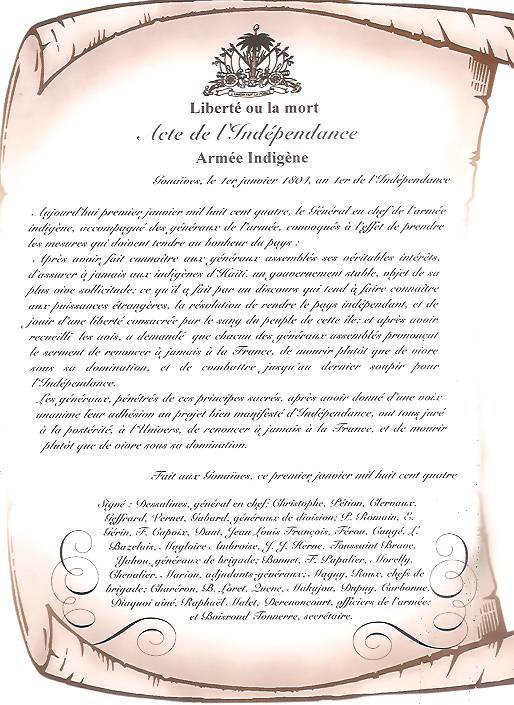 Liberté ou la mort
Acte de l'Indépendance
Armée Indigène
Gonaïves, le 1er janvier 1804, an 1er de l'Indépendance
Aujourd'hui premier janvier mil huit cent quatre, le Général en chef de l'armée
indigène, accompagné des généraux de l'armée, convoqués à l'effet de prendre
les mesures qui doivent tendre au bonheur du pays :
Après avoir fait connaître aux généraux assemblés ses véritables intérêts,
d'assurer à jamais aux indigènes d'Haïti, un gouvernement stable, objet de sa
plus vive sollicitude; ce qu'il a fait par un discours qui tend à faire connaître
aux puissances étrangères, la résolution de rendre le pays indépendant, et de
jouir d'une liberté consacrée par le sang du peuple de cette île; et après avoir
recueilli les avis, a demandé que chacun des généraux assemblés prononçat
le serment de renoncer à jamais à la France, de mourir plutôt que de vivre
sous sa domination, et de combattre jusqu'au dernier soupir pour
l'Indépendance.
Les généraux, pénétrés de ces principes sacrés, après avoir donné d'une voix
unanime leur adhésion au projet bien manifesté d'Indépendance, ont tous juré
à la postérité, à l'Univers, de renoncer à jamais à la France, et de mourir
plutôt que de vivre sous sa domination.
Fait aux Gonaïves, ce premier janvier mil huit cent quatre
Signé : Dessalines, général en chef; Christophe, Pétion, Clervaux,
Geffrard, Vernet, Gabard, généraux de division; P. Romain, E.
Gérin, F. Capoix, Daut, Jean Louis François, Férou, Cangé, L.
Bazelais, Magloire Ambroise, J. J. Herne, Toussaint Brave,
Yahou, généraux de brigade; Bonnet, F. Papalier, Morelly,
Chevalier, Marion, adjudants-généraux; Magny, Roux, chefs de
brigade; Charéron, B. Loret, Quene, Makajou, Dupuy, Carbonne,
Diaquoi aîné, Raphaël, Malet, Derenoncourt, officiers de l'armée;
et Boisrond Tonnerre, secrétaire.